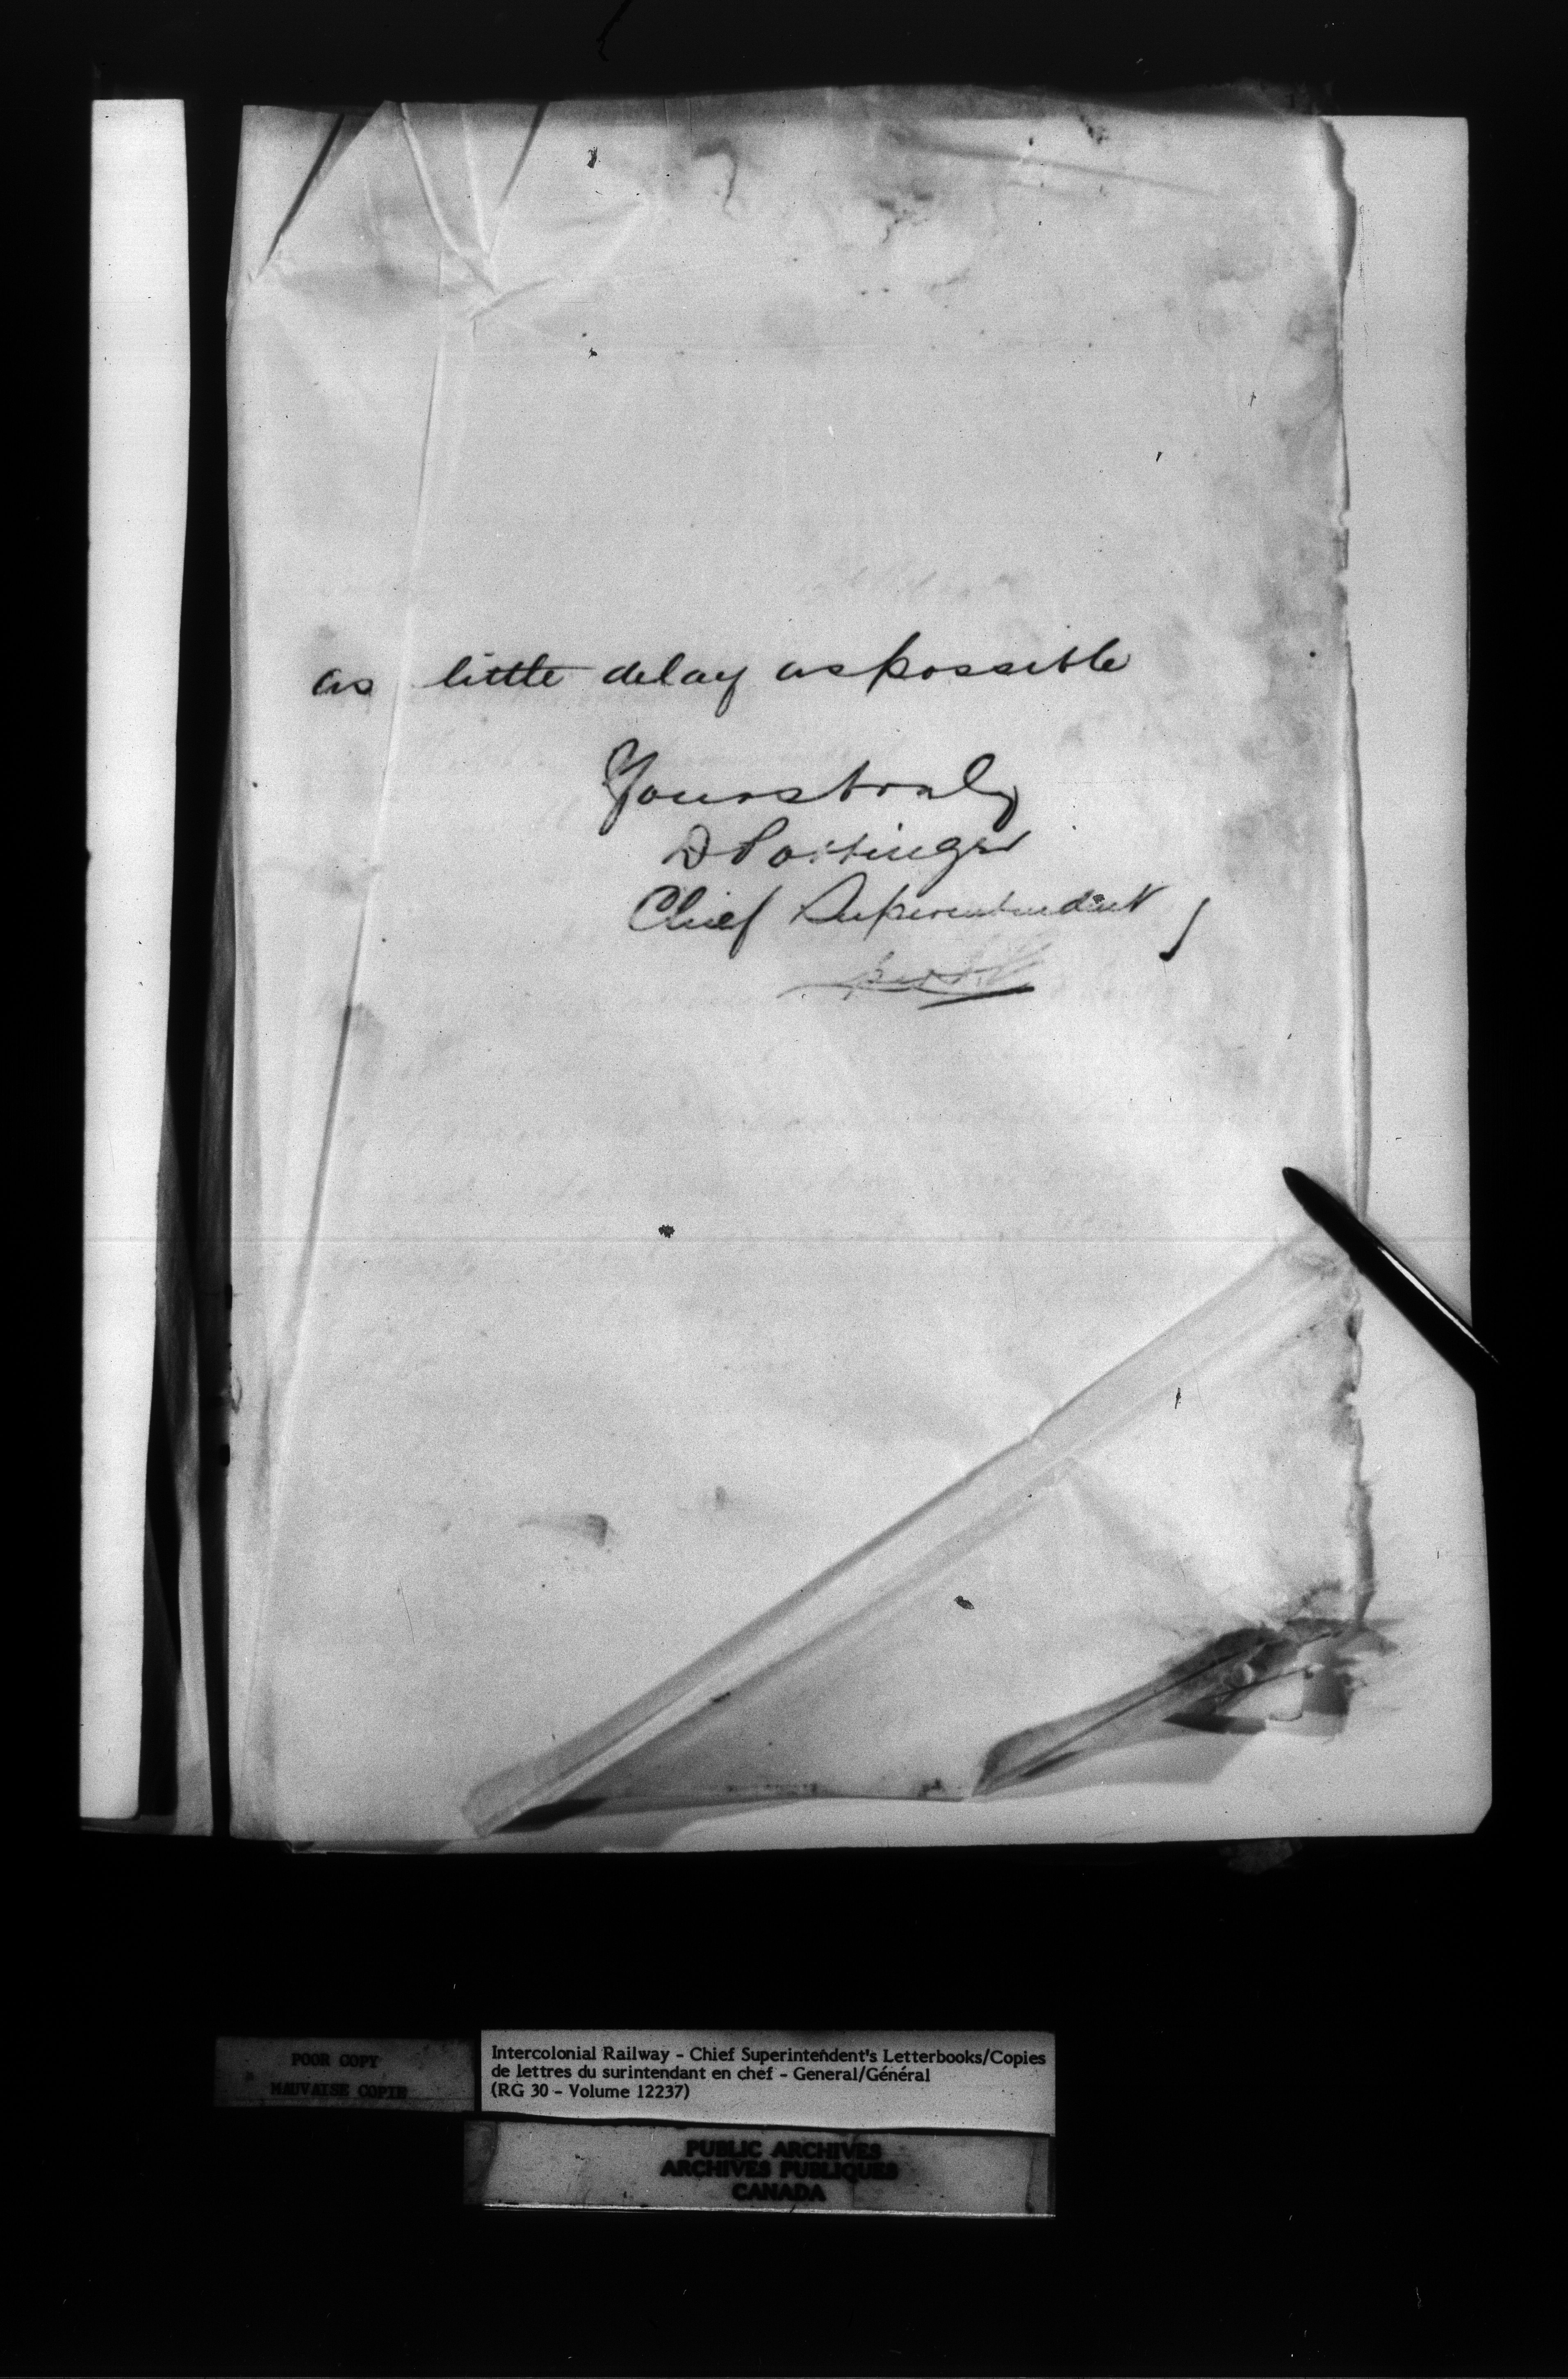 as little delay as possible
Yours truly
D Pottinger
Chief Superintendent
POOR COPY
MAUVAISE COPIE
Intercolonial Railway - Chief Superintendent's Letterbooks/Copies
de lettres du surintendant en chef - General/Général
(RG 30 - Volume 12237)
PUBLIC ARCHIVES
ARCHIVES PUBLIQUES
CANADA